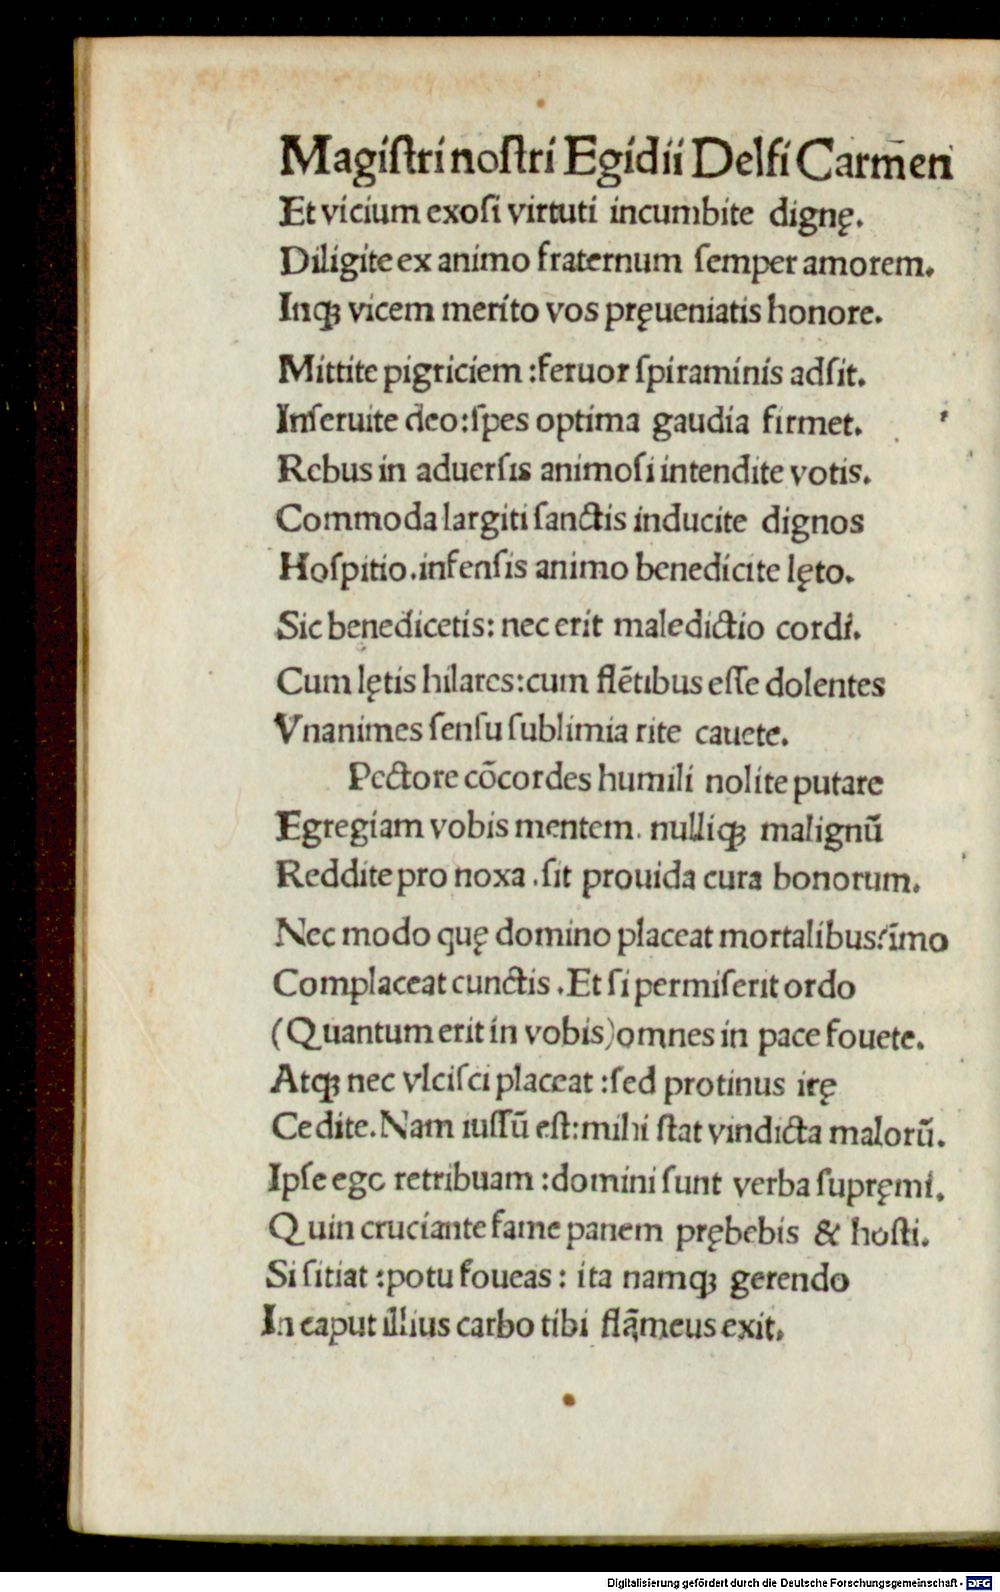 Magiſtri noſtri Egidii Delfi Carm̄en
Et vicium exoſi virtuti incumbite dignę.
Diligite ex animo fraternum ſemper amorem.
Inqꝫ vicem merito vos pręueniatis honore.
Mittite pigriciem :feruor ſpiraminis adſit.
Inſeruite deo:ſpes optima gaudia firmet.
Rebus in aduerſis animoſi intendite votis.
Commoda largiti ſanctis inducite dignos
Hoſpitio.infenſis animo benedicite lęto.
Sic benedicetis: nec erit maledictio cordi.
Cum lętis hilares:cum flētibus eſſe dolentes
Vnanimes ſenſu ſublimia rite cauete.
Pectore cōcordes humili nolite putare
Egregiam vobis mentem. nulliqꝫ malignū
Reddite pro noxa .ſit prouida cura bonorum.
Nec modo quę domino placeat mortalibus:īmo
Complaceat cunctis .Et ſi permiſerit ordo
(Quantum erit in vobis)omnes in pace fouete.
Atqꝫ nec vlciſci placeat :ſed protinus irę
Cedite.Nam iuſſū eſt:mihi ſtat vindicta malorū.
Ipſe ego retribuam :domini ſunt verba ſupręmi.
Quin cruciante fame panem prębebis & hoſti.
Si ſitiat :potu foueas: ita namqꝫ gerendo
In caput illius carbo tibi flāmeus exit.
Digitalisierung gefördert durch die Deutsche Forschungsgemeinschaft - DFG